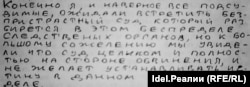 КОНЕЧНО Я, И НАВЕРНОЕ ВСЕ ПОДСУ-
ДИМЫЕ, ОЖИДАЛИ ВСТРЕТИТЬ БЕС-
ПРИСТРАСТНЫЙ СУД КОТОРЫЙ РАЗ-
БИРЕТСЯ В ЭТОМ БЕСПРЕДЕЛЕ
СЛЕДСТВЕННЫХ ОРГАНОВ, НО К БО-
ЛЬШОМУ СОЖЕЛЕНИЮ МЫ УВИДЕ-
ЛИ ЧТО СУД ЦЕЛИКОМ И ПОЛНОСТЬЮ
НА СТОРОНЕ ОБВИНЕНИЯ, И
НЕ ЖЕЛАЕТ УСТАНАВЛИВАТЬ ИС-
ТИНУ В ДАННОМ
ДЕЛЕ
Idel.Реалии (RFE/RL)